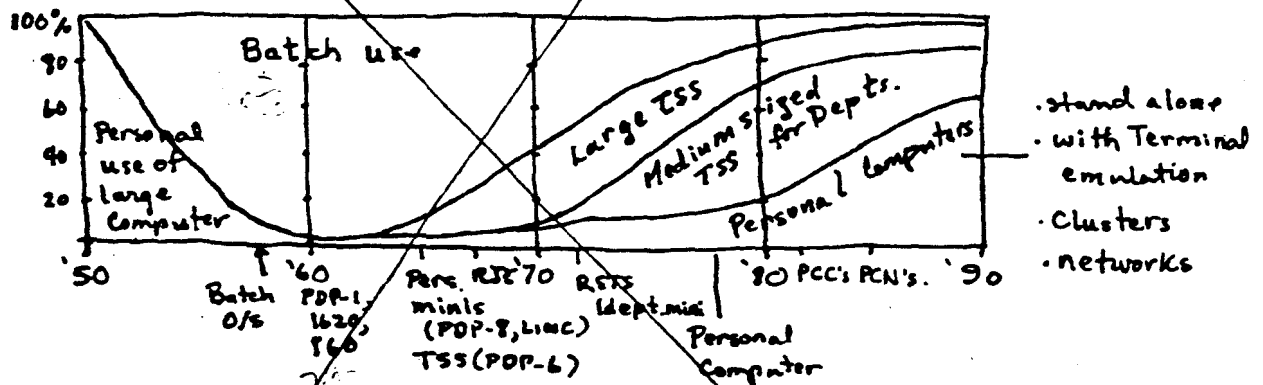 100%
80
60
40
20
Batch use
Personal
use of
large
Computer
Large TSS
Medium sized
TSS
for Depts.
Personal Computers
• stand alone
• with Terminal
emulation
• Clusters
• networks
'50
'60
'70
'80 PCC's PCN's. '90
Batch
O/S
PDP-1,
1620,
Pers.
minis
(PDP-8, LINC)
TSS (PDP-6)
RSTS
(dept. mini
Personal
Computer